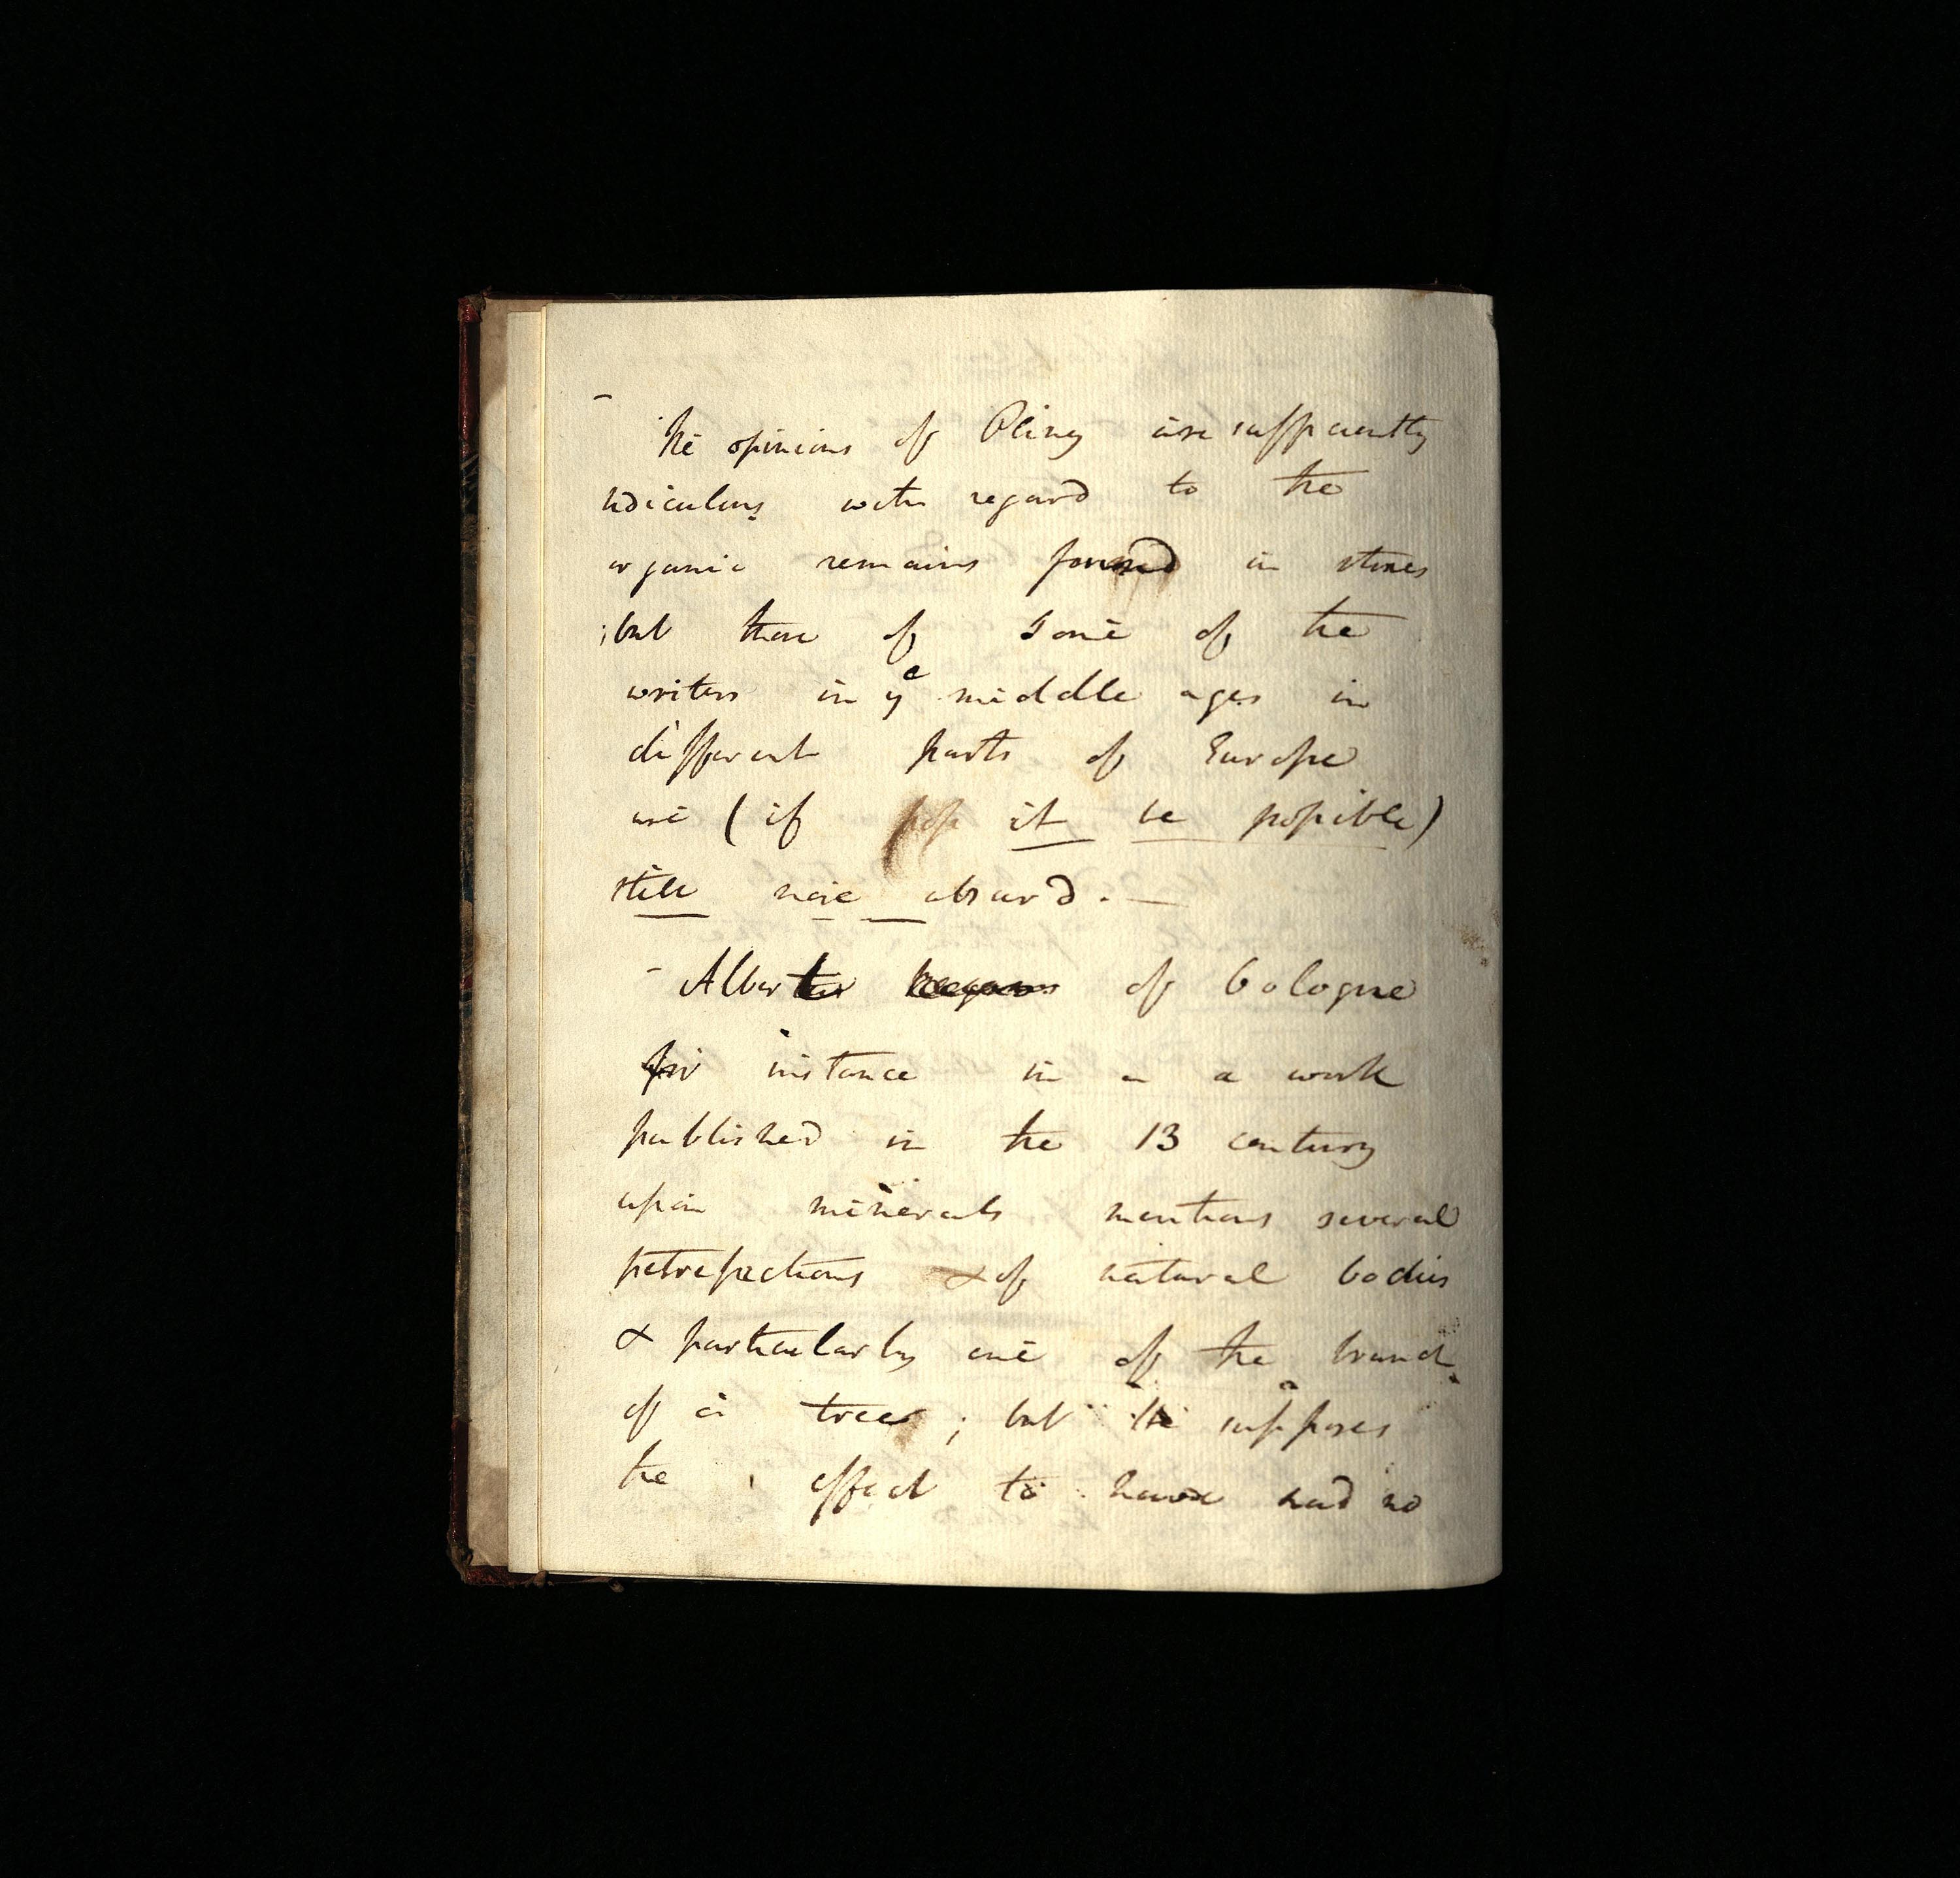 - The opinions of Pliny are sufficiently
ridiculous with regard to the
organic remains found in stones
; but those of some of the
writers in yᵉ middle ages in
different parts of Europe
are (if it be possible)
still more absurd. —
- Albert of Cologne
for instance in a work
published in the 13 century
upon minerals mentions several
petrefactions of natural bodies
& particularly one of the branch
of a tree; but he supposes
the effect to have had no